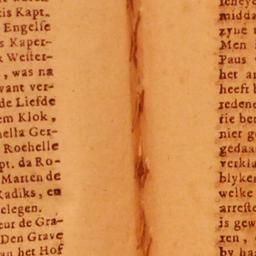 tis Kapt.
Engelse
s Kaper-
Welter-
, was na
want ver-
de Liefde
em Klok,
nella Ger-
Rochelle
pt. da Ro-
Marten de
Radiks, en
elegen.
eur de Gra-
Den Grave
an het Hof
midda
zyne
Men
Paus
het ar
heeft
redene
rie ber
niet ge
gedaa
verkla
blyken
welke
arreste
is gew
ren,
by han